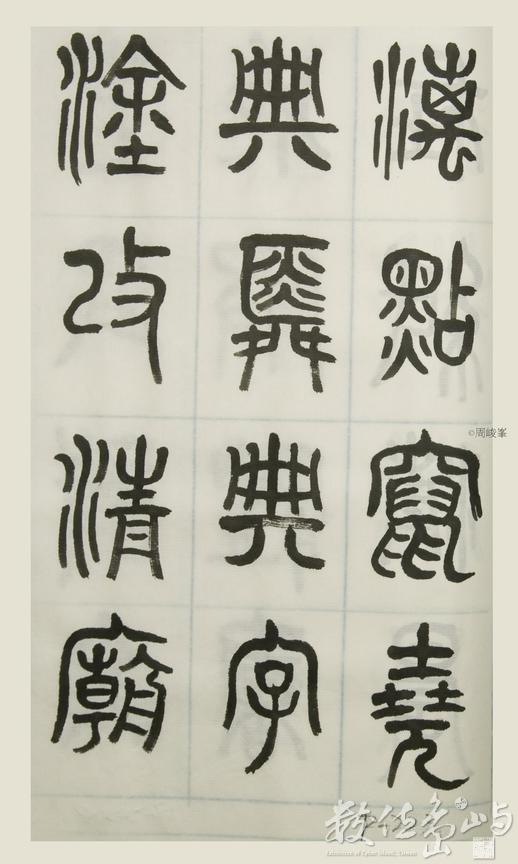 漓點竄堯
典舜典字
塗改清廟
©周峻峯
數位島嶼